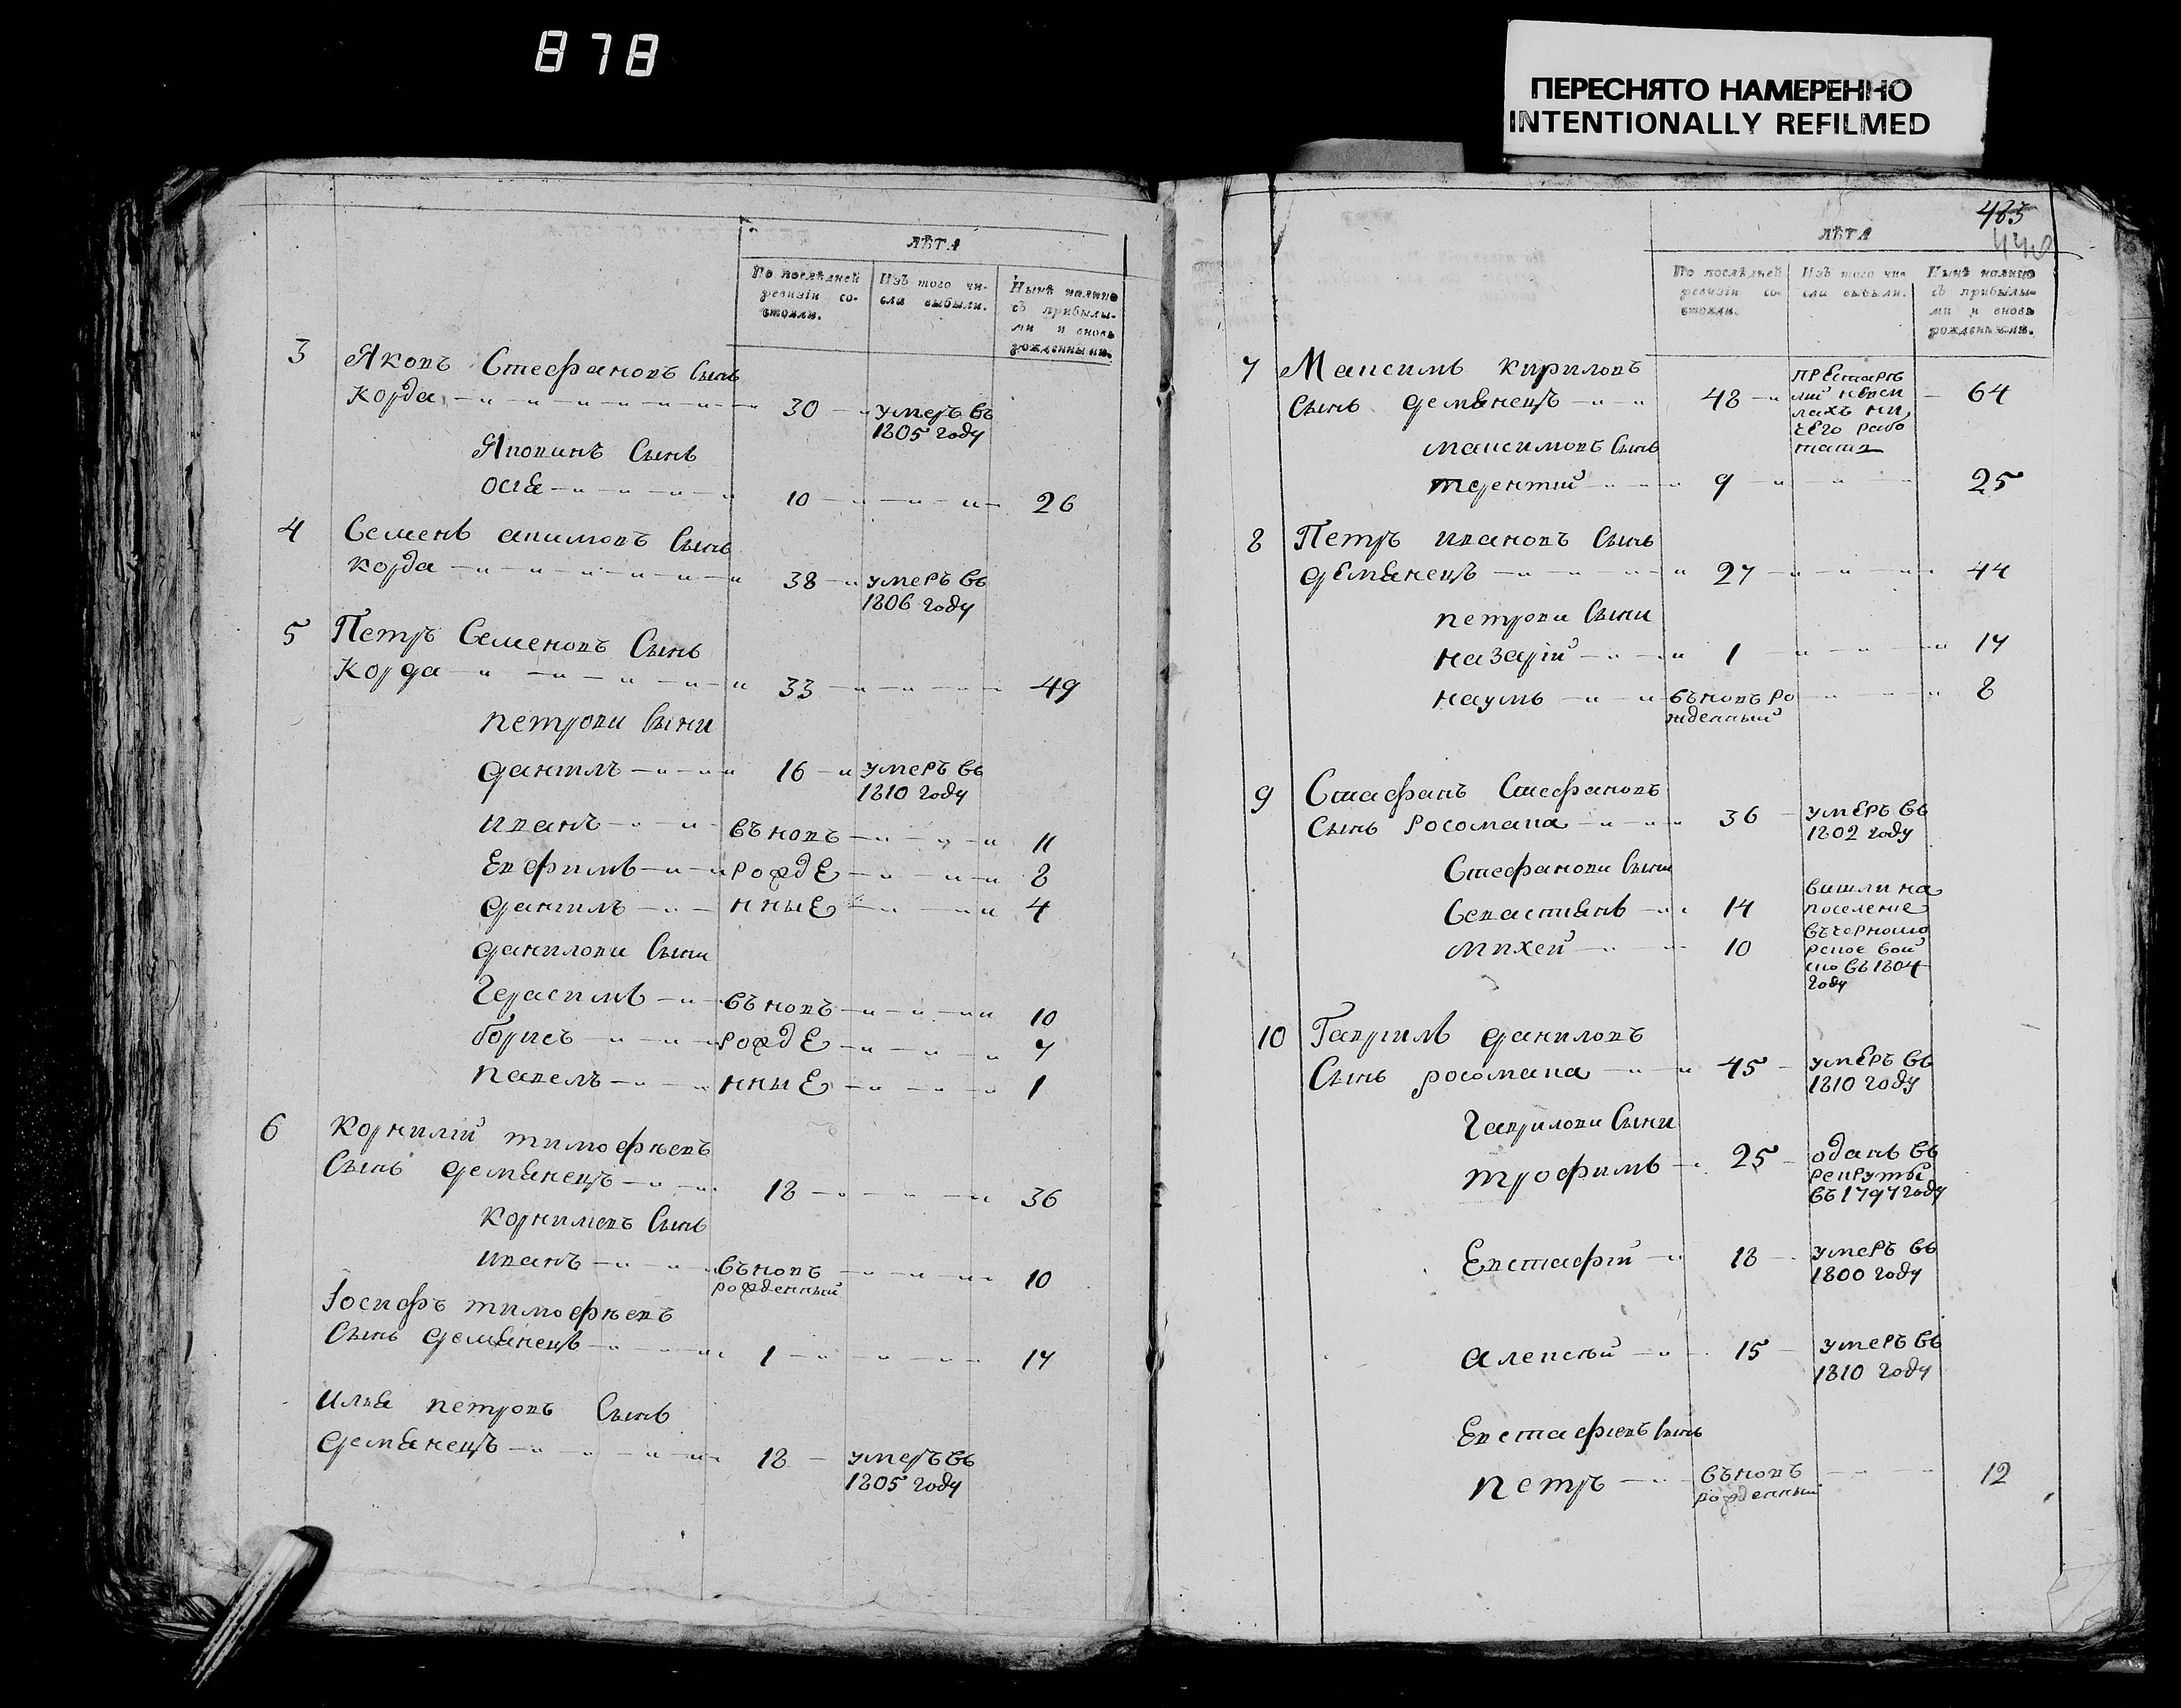 878
ПЕРЕСНЯТО НАМЕРЕННО
INTENTIONALLY REFILMED
ЛѢТА
По послѣдней ревизіи со-стояли.
Изъ того чи-сла выбыли.
Нынѣ налицо съ прибылы-ми и вновь рожденными.
3 Яковъ Стефановъ Сынъ
Корда 30 умеръ въ
1805 году
Яковивъ Сынъ
Осiя 10 26
4 Семенъ акимовъ Сынъ
Корда 38 умеръ въ
1806 году
5 Петръ Семеновъ Сынъ
Корда 33 49
петрови Сыни
данилъ 16 умеръ въ
1810 году
иванъ въновъ 11
Евфимъ рожде 8
данилъ нные 4
данилови Сыни
Герасимъ въновъ 10
борисъ рожде 7
павелъ нные 1
6 Корнилiй тимофѣевъ
Сынъ демянецъ 18 36
Корнилiевъ Сынъ
иванъ въновъ 10
рожденный
Iосифъ тимофѣевъ
Сынъ демянецъ 1 17
илья петровъ Сынъ
демянецъ 18 умеръ въ
1805 году
485
ЛѢТА
По послѣдней ревизіи со-стояли.
Изъ того чи-сла выбыли.
Нынѣ налицо съ прибылы-ми и вновь рожденными.
7 Максимъ Кириловъ
Сынъ демянецъ 48 64
престаръ
лий
чего рабо
тать
максимовъ Сынъ
терентiй 9 25
8 Петръ ивановъ Сынъ
демянецъ 27 44
петрови Сыни
назарiй 1 17
наумъ въновъ ро 8
жденный
9 Стефанъ Стефановъ
Сынъ росомаха 36 умеръ въ
1802 году
Стефанови Сыни
Севастiянъ 14
михей 10
вишли на
поселение
въ черномо
рское вой
ско въ 1804
году
10 Гавриилъ даниловъ
Сынъ росомаха 45 умеръ въ
1810 году
Гаврилови Сыни
трофимъ 25 одапъ въ
рекруты
въ 1797 году
Евстафiй 18 умеръ въ
1800 году
алексѣй 15 умеръ въ
1810 году
Евстафiевъ Сынъ
петръ въновъ 12
рожденный